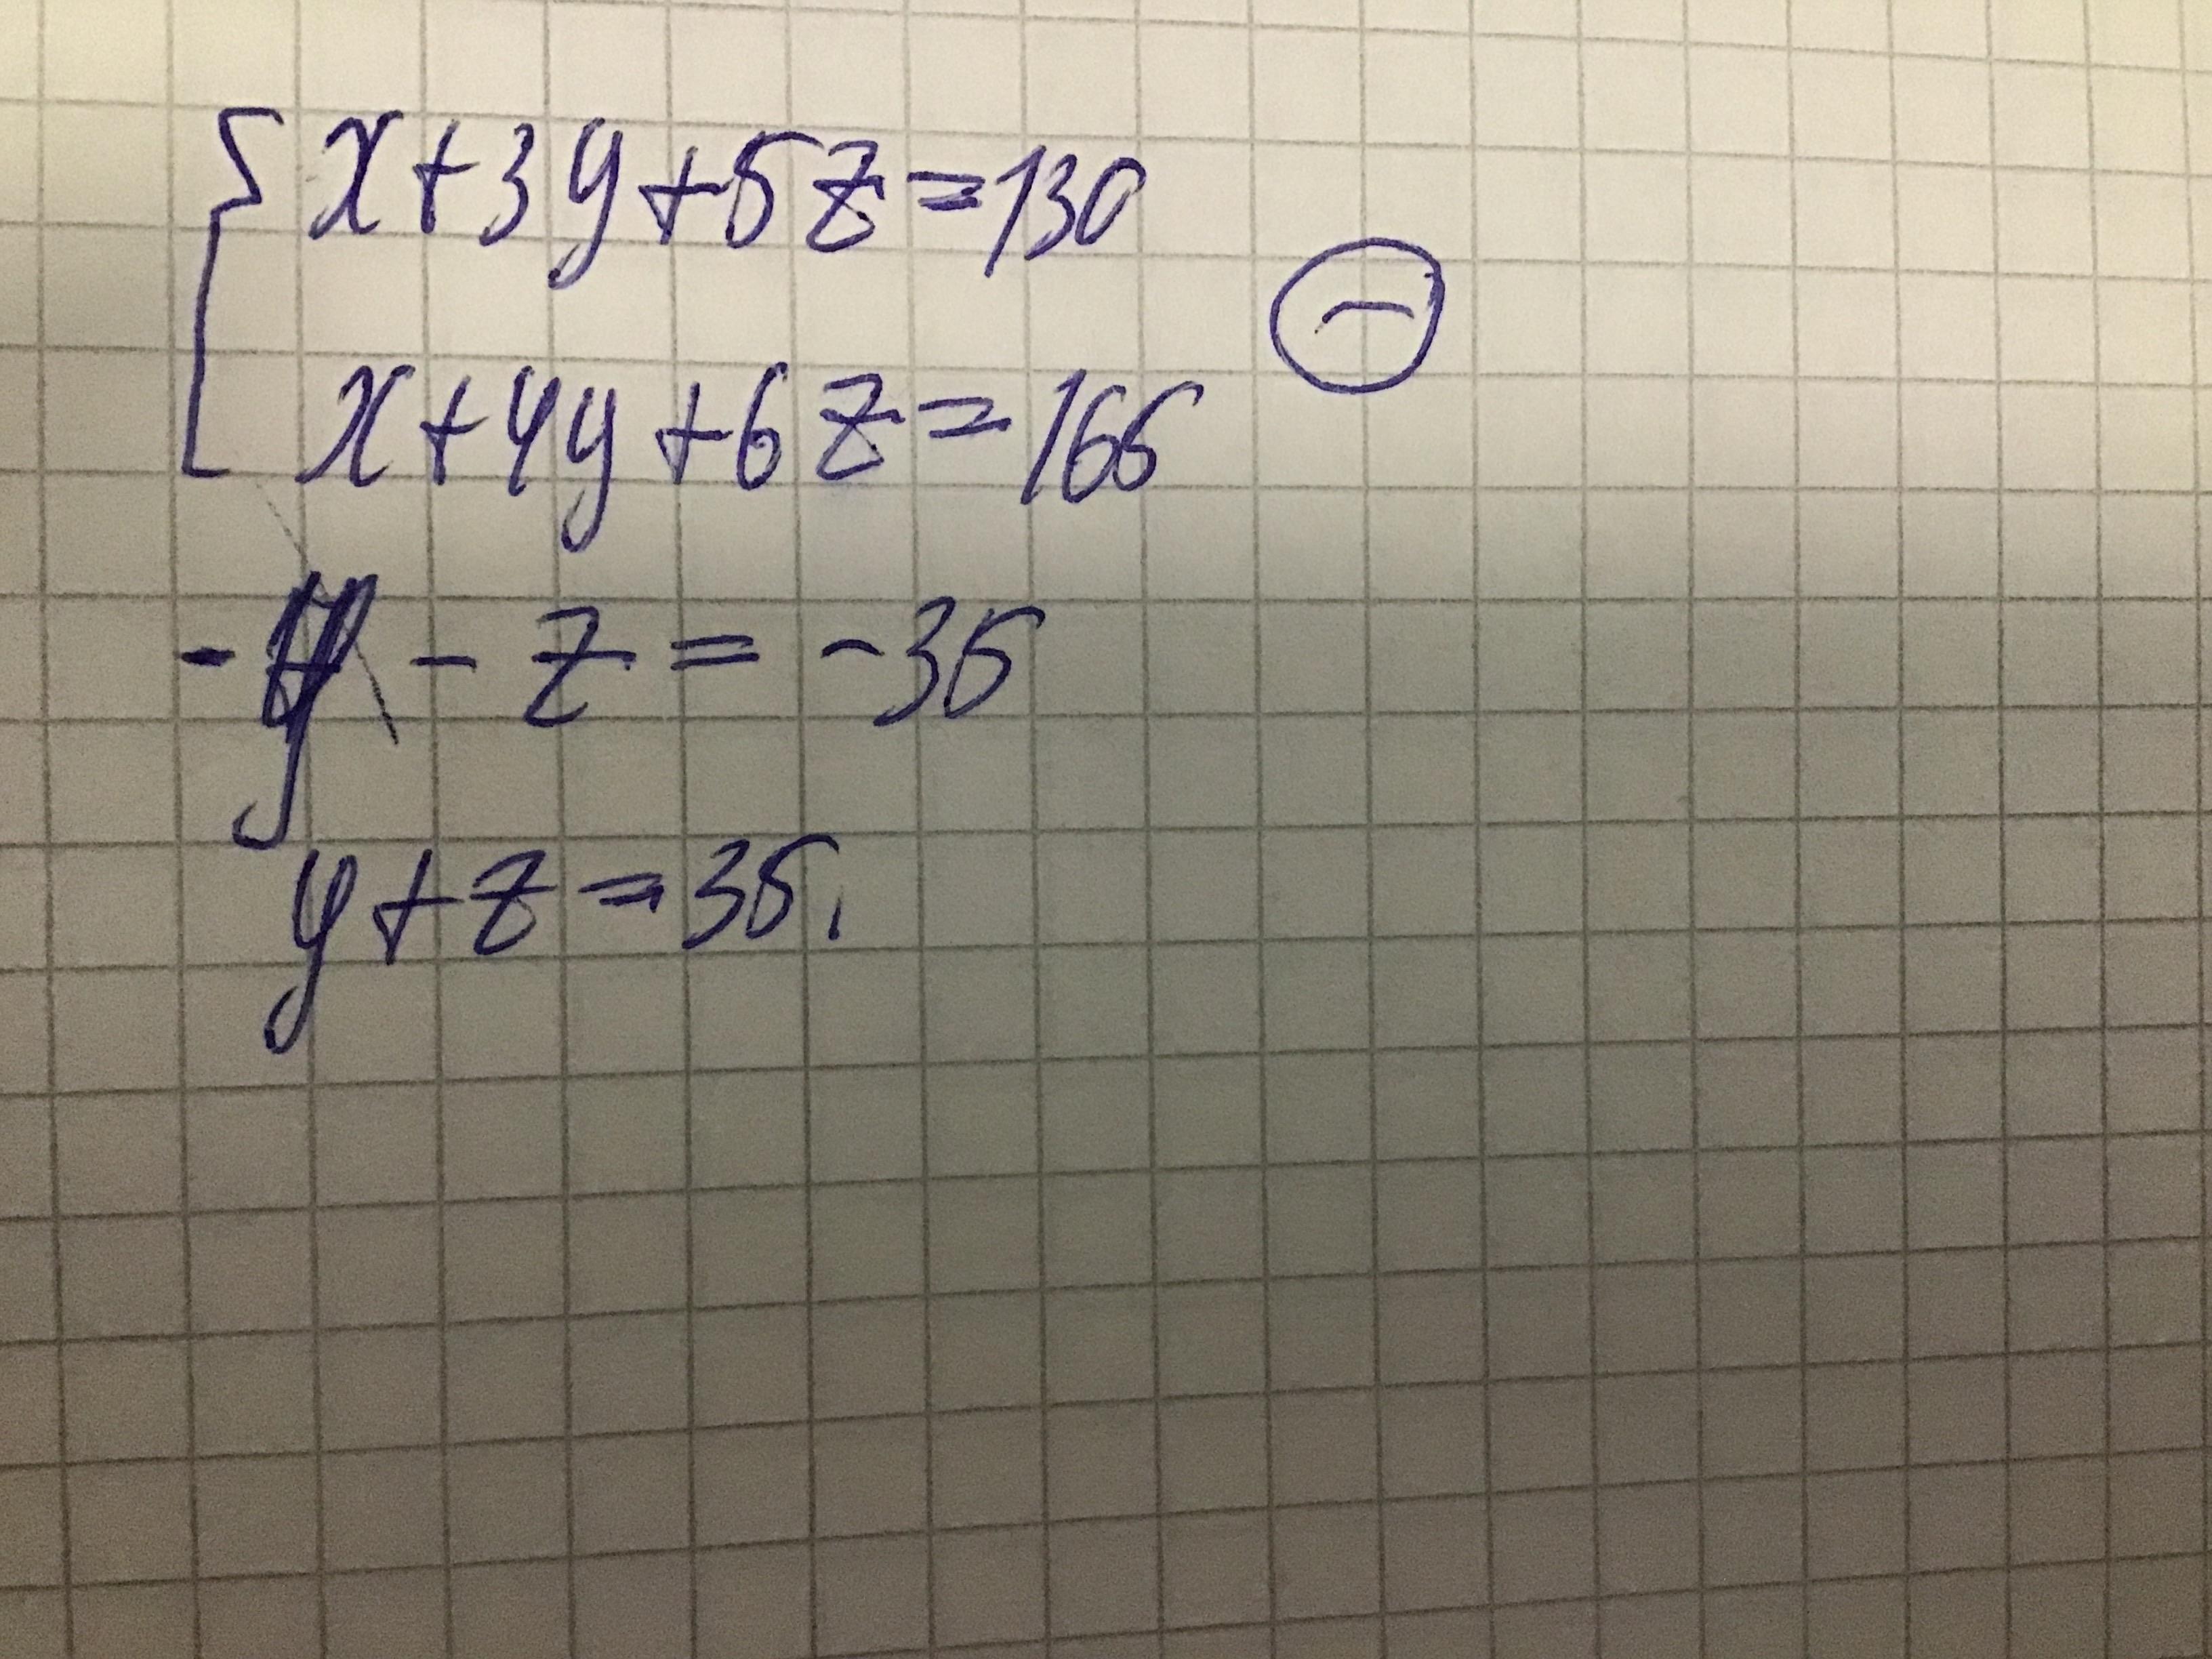 x+3y+5z=130
⊖
x+4y+6z=165
-y - z = -35
y+z=35,